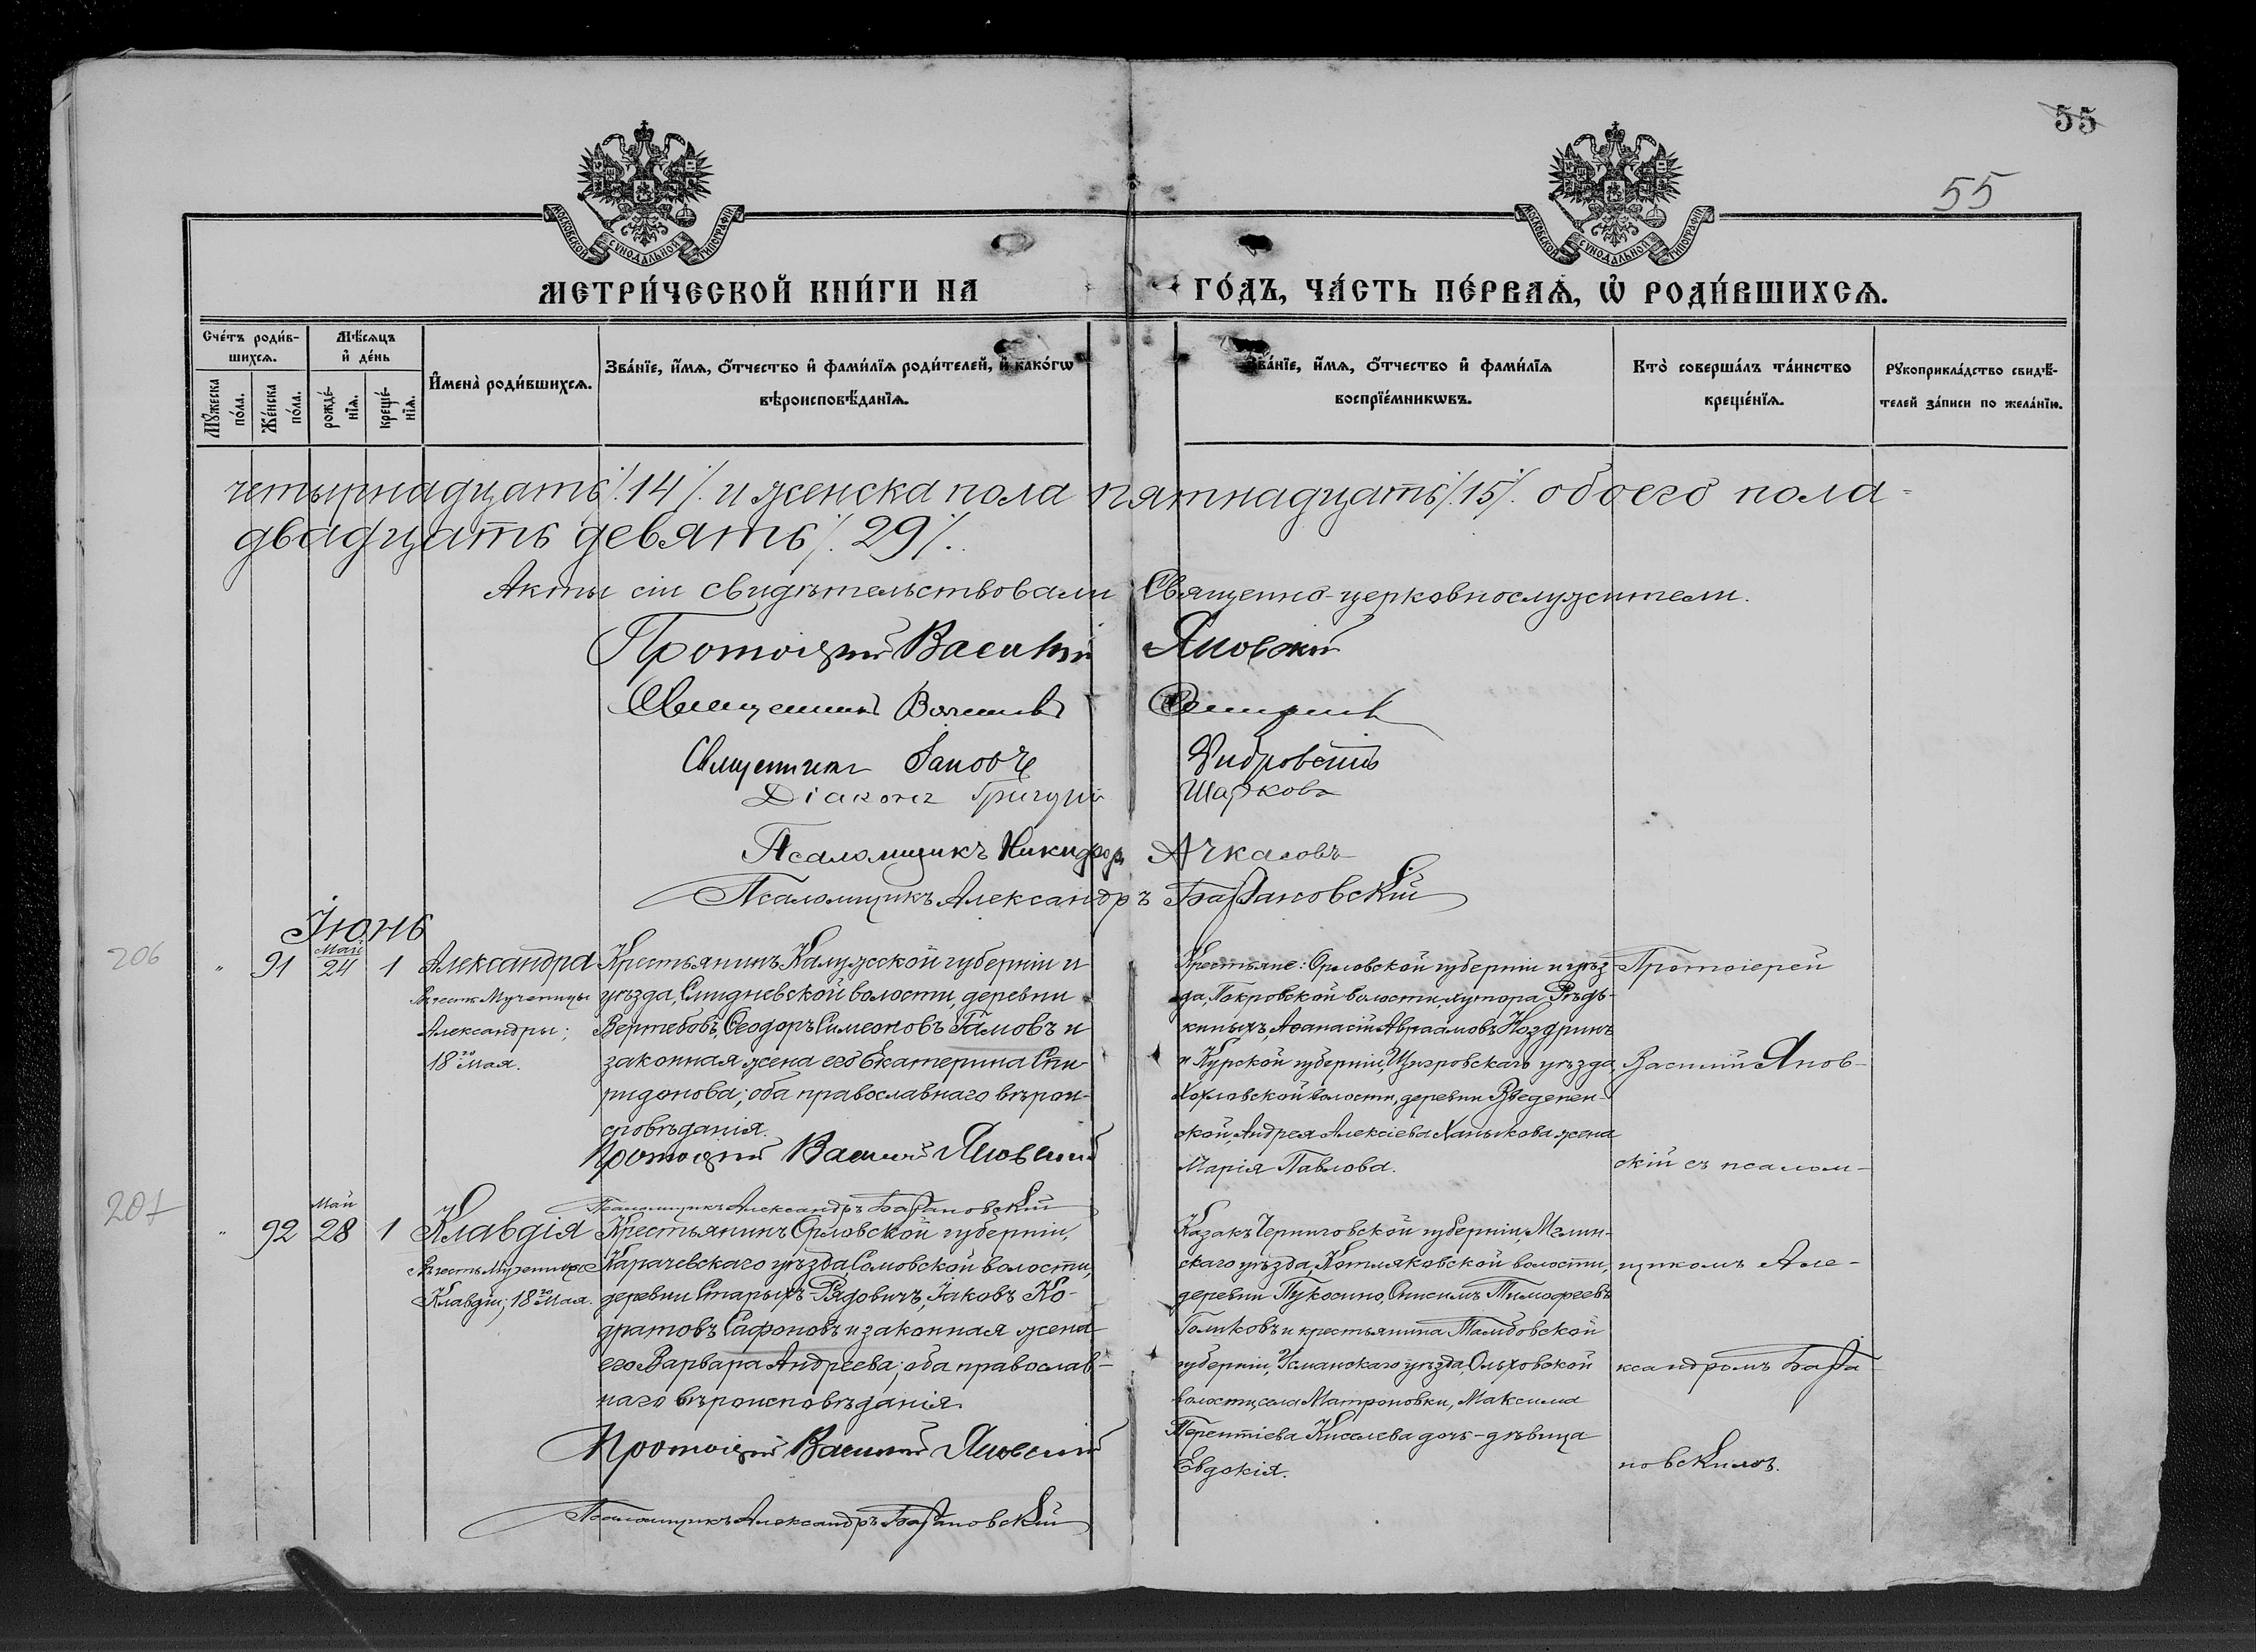 55
55
МОСКОВСКОЙ СѴНОДАЛЬНОЙ ТИПОГРАФІИ
МОСКОВСКОЙ СѴНОДАЛЬНОЙ ТИПОГРАФІИ
МЕТРИ́ЧЕСКОЙ КНИ́ГИ НА
ГО́ДЪ, ЧА́СТЬ ПЕ́РВАѦ, Ѡ҆ РОДИ́ВШИХСѦ.
Сче́тъ роди́в-
шихсѧ.
Мꙋ́жеска
по́ла.
Же́нска
по́ла.
Мѣ́сяцъ
и҆ де́нь
рожде́-
нїѧ.
креще́-
нїѧ.
И҆мена̀ роди́вшихсѧ.
Зва́нїе, и҆́мѧ, ѻ҆́тчество и҆ фами́лїѧ роди́телей, и҆ како́гѡ
вѣроисповѣ́данїѧ.
Зва́нїе, и҆́мѧ, ѻ҆́тчество и҆ фами́лїѧ
воспрїе́мникѡвъ.
Кто̀ соверша́лъ та́инство
креще́нїѧ.
Рꙋкоприкла́дство свидѣ́-
телей за́писи по жела́нїю.
четырнадцать /.14/. и женска пола пятнадцать /.15/. обоего пола -
двадцать девять /.29/.
Акты сіи свидѣтельствовали Священно-церковнослужители.
Протоіерей Василій Яновскій
Священникъ
Священникъ Іаковъ
Діаконъ Григорій Шарковъ
Псаломщикъ Никифоръ Ачкасовъ
Псаломщикъ Александръ Барановскій
Іюнь
206
" 91 Май 24 1
Александра
Въ честь Мученицы
Александры;
18го Мая.
Крестьянинъ Калужской губерніи и
уѣзда, волости, деревни
Вертебовъ, Ѳеодоръ Симеоновъ Гамовъ и
законная жена его Екатерина Спи-
ридонова; оба православнаго вѣрои-
сповѣданія.
Протоіерей Василій Яновскій
Псаломщикъ Александръ Барановскій
Крестьяне: Орловской губерніи и уѣз-
да, Покровской волости, хутора Рѣдь-
киныхъ, Аѳанасій Авраамовъ Ноздринъ
и Курской губерніи, Щигровскаго уѣзда,
Хохловской волости, деревни Введенен-
ской, Андрея Алексіева Ханыкова жена
Марія Павлова.
Протоіерей
Василій Янов-
скій съ псалом-
207
" 92 Май 28 1
Клавдія
Въ честь Мученицы
Клавдіи; 18го Мая.
Крестьянинъ Орловской губерніи,
Карачевскаго уѣзда Сомовской волости,
деревни Старыхъ-Рядовичъ, Іаковъ Ко-
дратовъ Сафоновъ и законная жена
его Варвара Андреева; оба православ-
наго вѣроисповѣданія.
Протоіерей Василій Яновскій
Псаломщикъ Александръ Барановскій
Казакъ Черниговской губерніи, Мглин-
скаго уѣзда, Котляковской волости,
деревни Пукосино, Онисимъ Тимофеевъ
Голиковъ и крестьянина Тамбовской
губерніи, Усманскаго уѣзда, Ольховской
волости, села Матреновки, Максима
Терентіева Киселева дочь-дѣвица
Евдокія.
щикомъ Але-
ксандромъ Бара-
новскимъ.